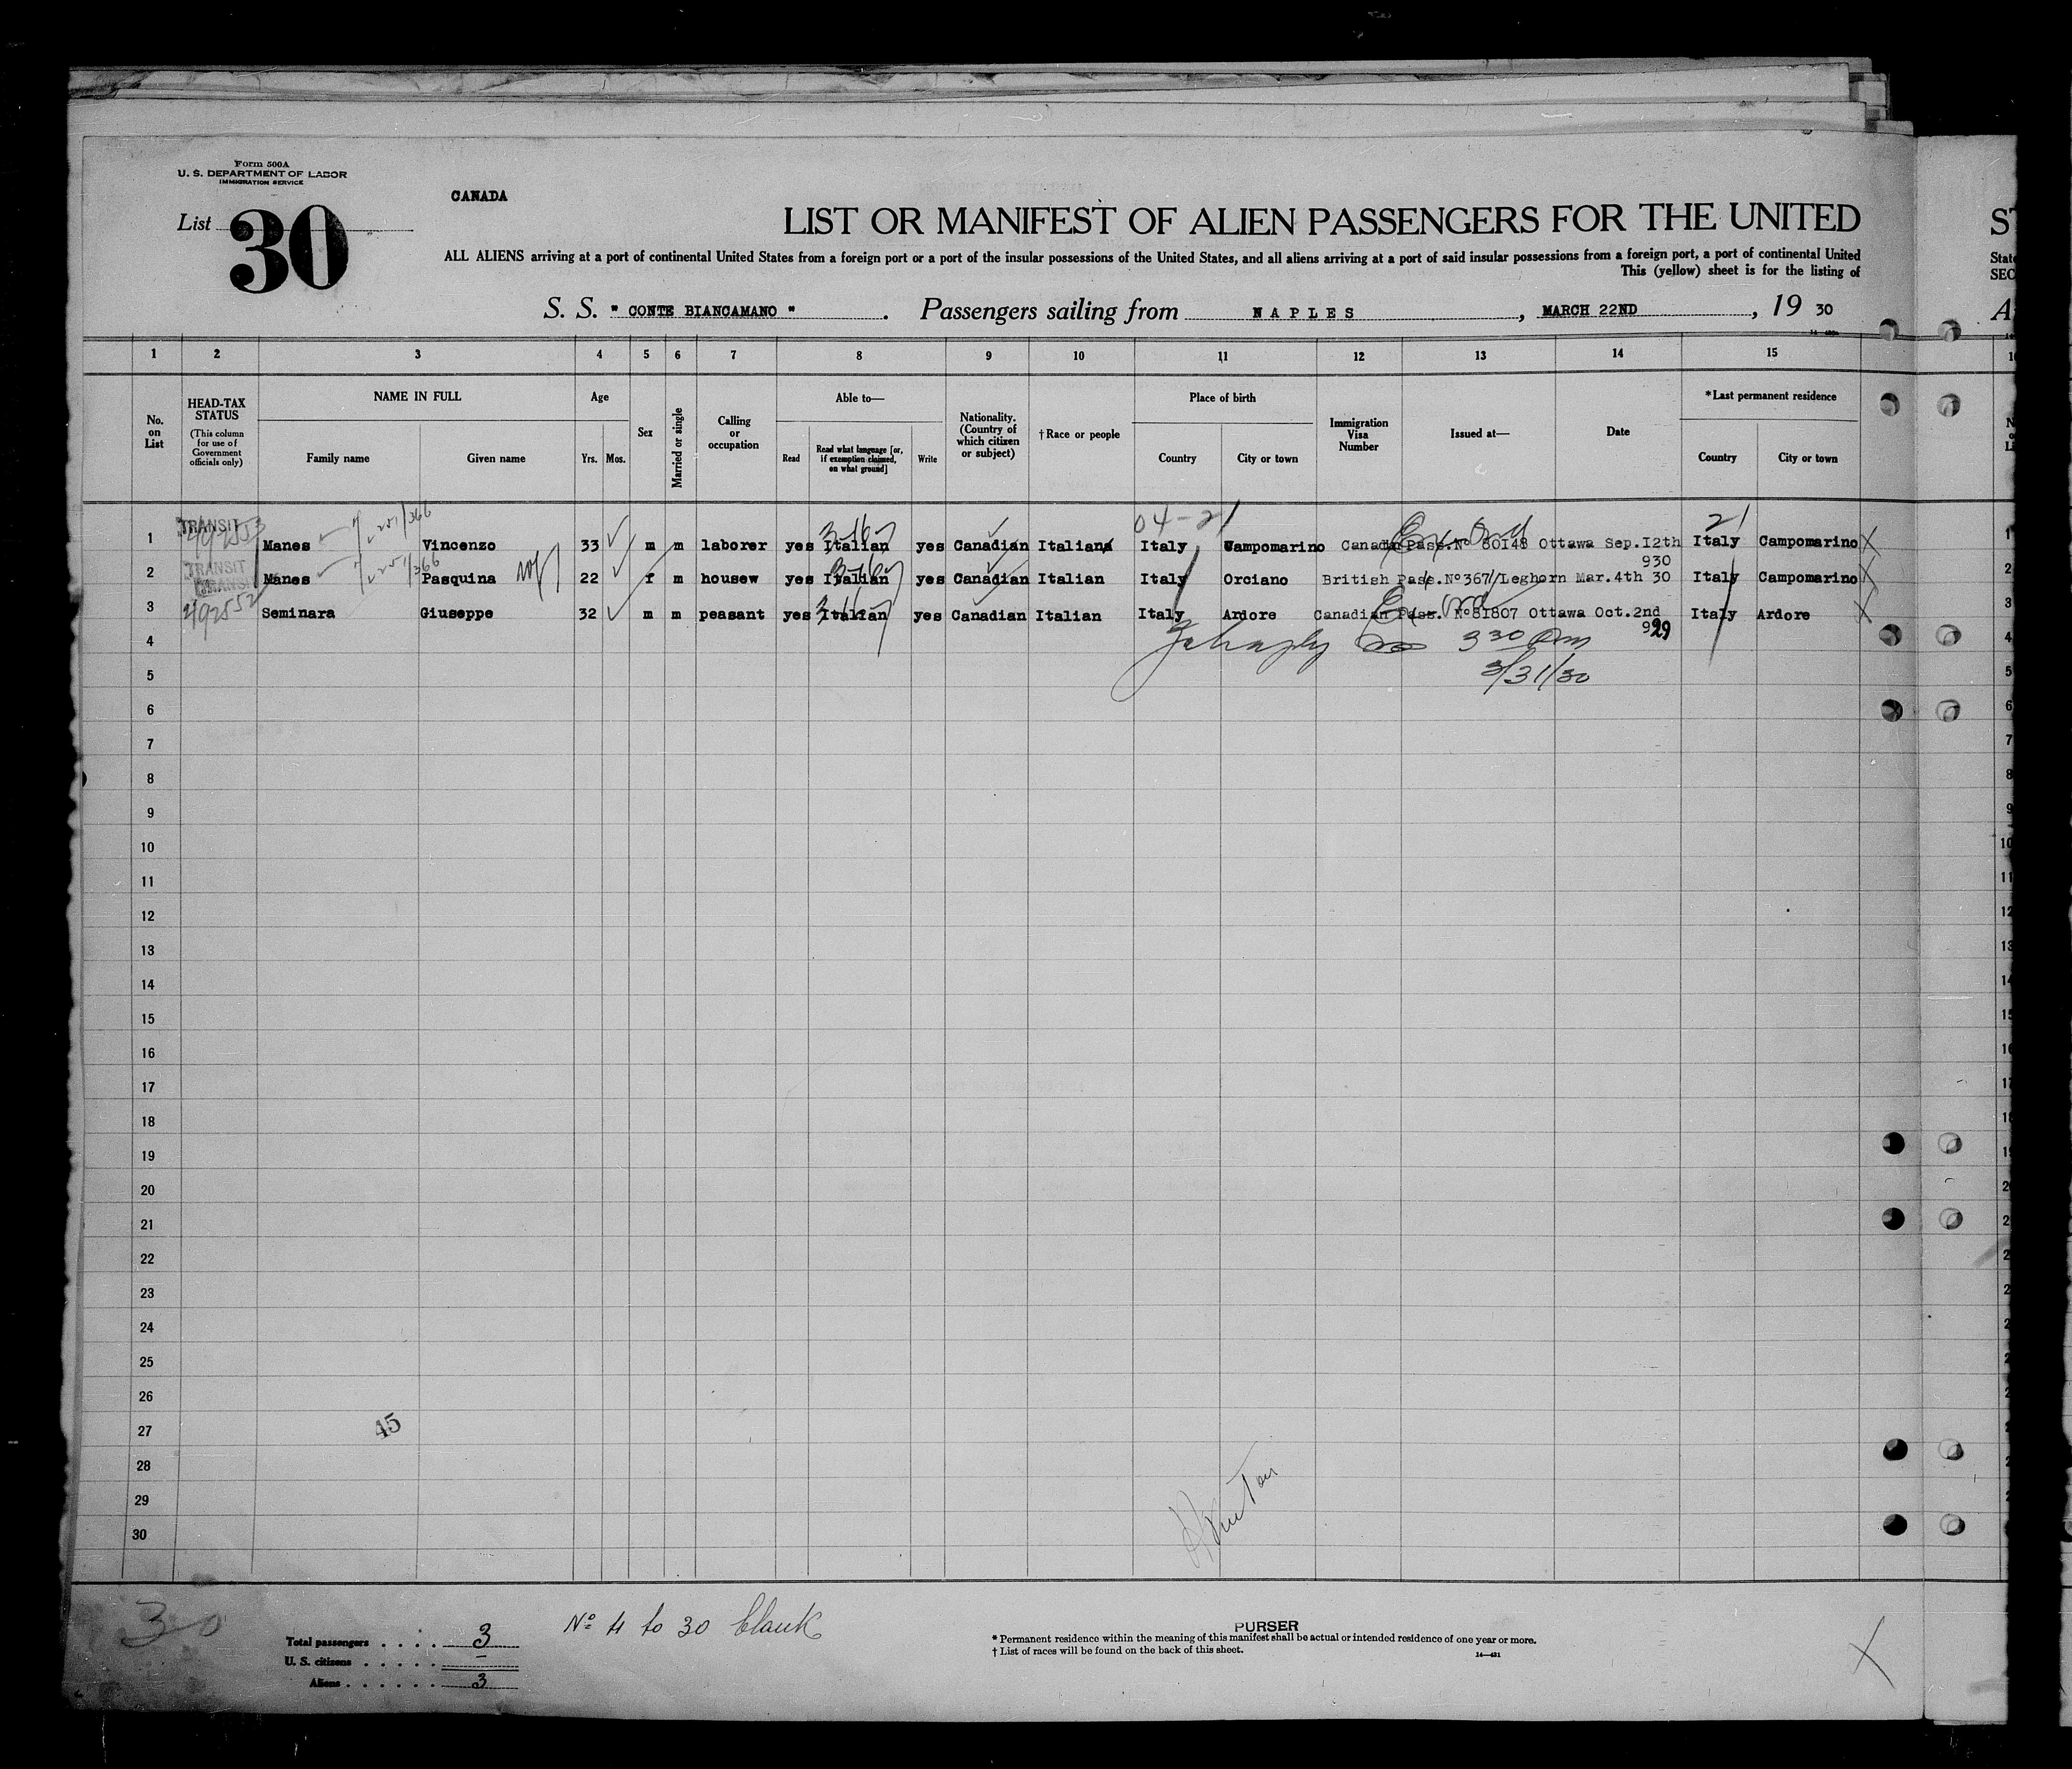 Form 500A
U. S. DEPARTMENT OF LABOR
IMMIGRATION SERVICE
CANADA
List 30
LIST OR MANIFEST OF ALIEN PASSENGERS FOR THE UNITED
ALL ALIENS arriving at a port of continental United States from a foreign port or a port of the insular possessions of the United States, and all aliens arriving at a port of said insular possessions from a foreign port, a port of continental United
This (yellow) sheet is for the listing of
S. S. " CONTE BIANCAMANO ". Passengers sailing from NAPLES, MARCH 22ND, 19 30
1 2 3 4 5 6 7 8 9 10 11 12 13 14 15
No. on List
HEAD-TAX STATUS
(This column for use of Government officials only)
NAME IN FULL
Family name Given name
Age
Yrs. Mos.
Sex
Married or single
Calling or occupation
Able to—
Read
Read what language [or, if exemption claimed, on what ground]
Write
Nationality. (Country of which citizen or subject)
† Race or people
Place of birth
Country City or town
Immigration Visa Number
Issued at—
Date
* Last permanent residence
Country City or town
04-21 21
1 TRANSIT Manes Vincenzo 33 m m laborer yes Italian yes Canadian Italian Italy Campomarino Canada Pass.No 80148 Ottawa Sep.I2th Italy Campomarino X
930
2 TRANSIT Manes Pasquina 22 f m housew yes Italian yes Canadian Italian Italy Orciano British Pass.No 367 Leghorn Mar.4th 30 Italy Campomarino X
3 492552 Seminara Giuseppe 32 m m peasant yes Italian yes Canadian Italian Italy Ardore Canadian Pass. No 81807 Ottawa Oct.2nd Italy Ardore X
929
4 3 30 Pm
5 3/31/30
6
7
8
9
10
11
12
13
14
15
16
17
18
19
20
21
22
23
24
25
26
27 45
28
29
30
30
Total passengers . . . . 3
U. S. citizens . . . . . –
Aliens . . . . . . 3
No 4 to 30 blank
PURSER
* Permanent residence within the meaning of this manifest shall be actual or intended residence of one year or more.
† List of races will be found on the back of this sheet.
14—431
X